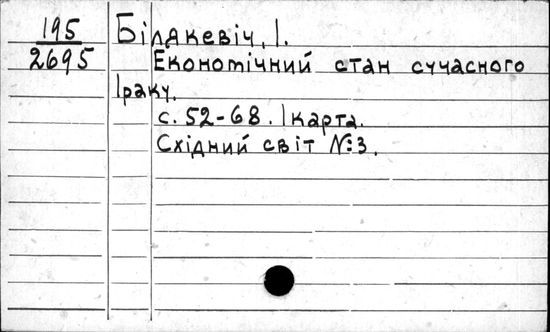 195
2695
Білякевіч, І.
Економічний стан сучасного
Іраку.
с. 52-68. Ікарта.
Східний світ №3.